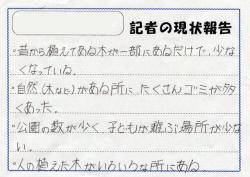 記者の現状報告
・昔から植えてある木が一部にあるだけで、少な
くなっている。
・自然(木など)がある所に、たくさんゴミが多
くあった。
・公園の数が少く、子どもが遊ぶ場所が少な
い。
・人の植えた木がいろいろな所にある。